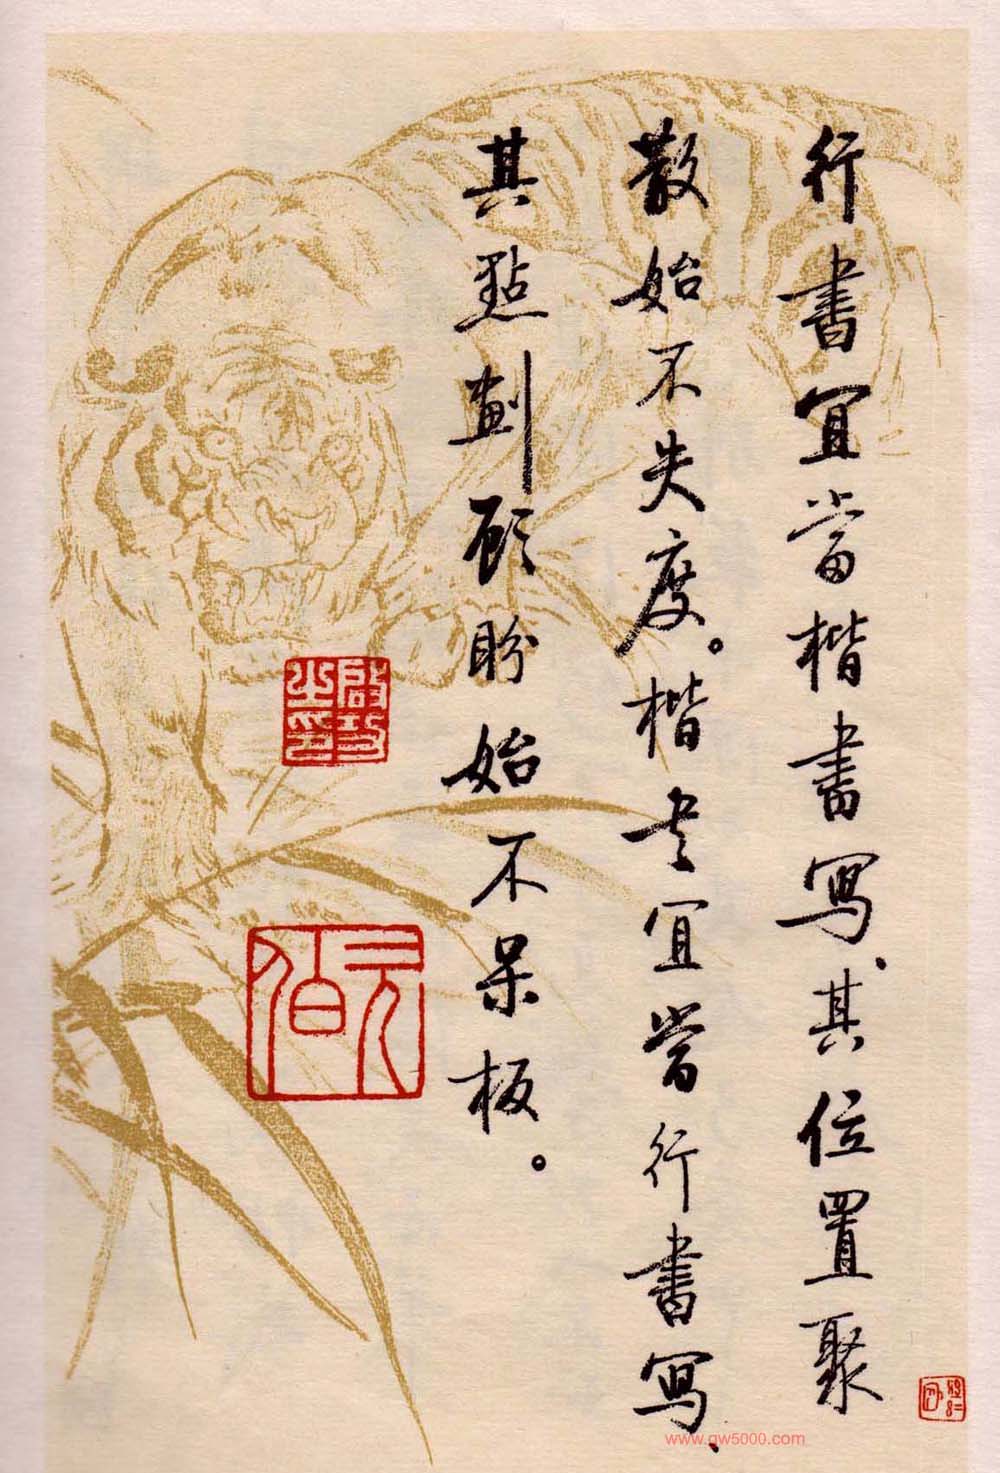 行書宜當楷書写、其位置聚
散始不失度。楷书宜當行書写、
其點劃顾盼始不呆板。
啟功之印
元伯
www.gw5000.com